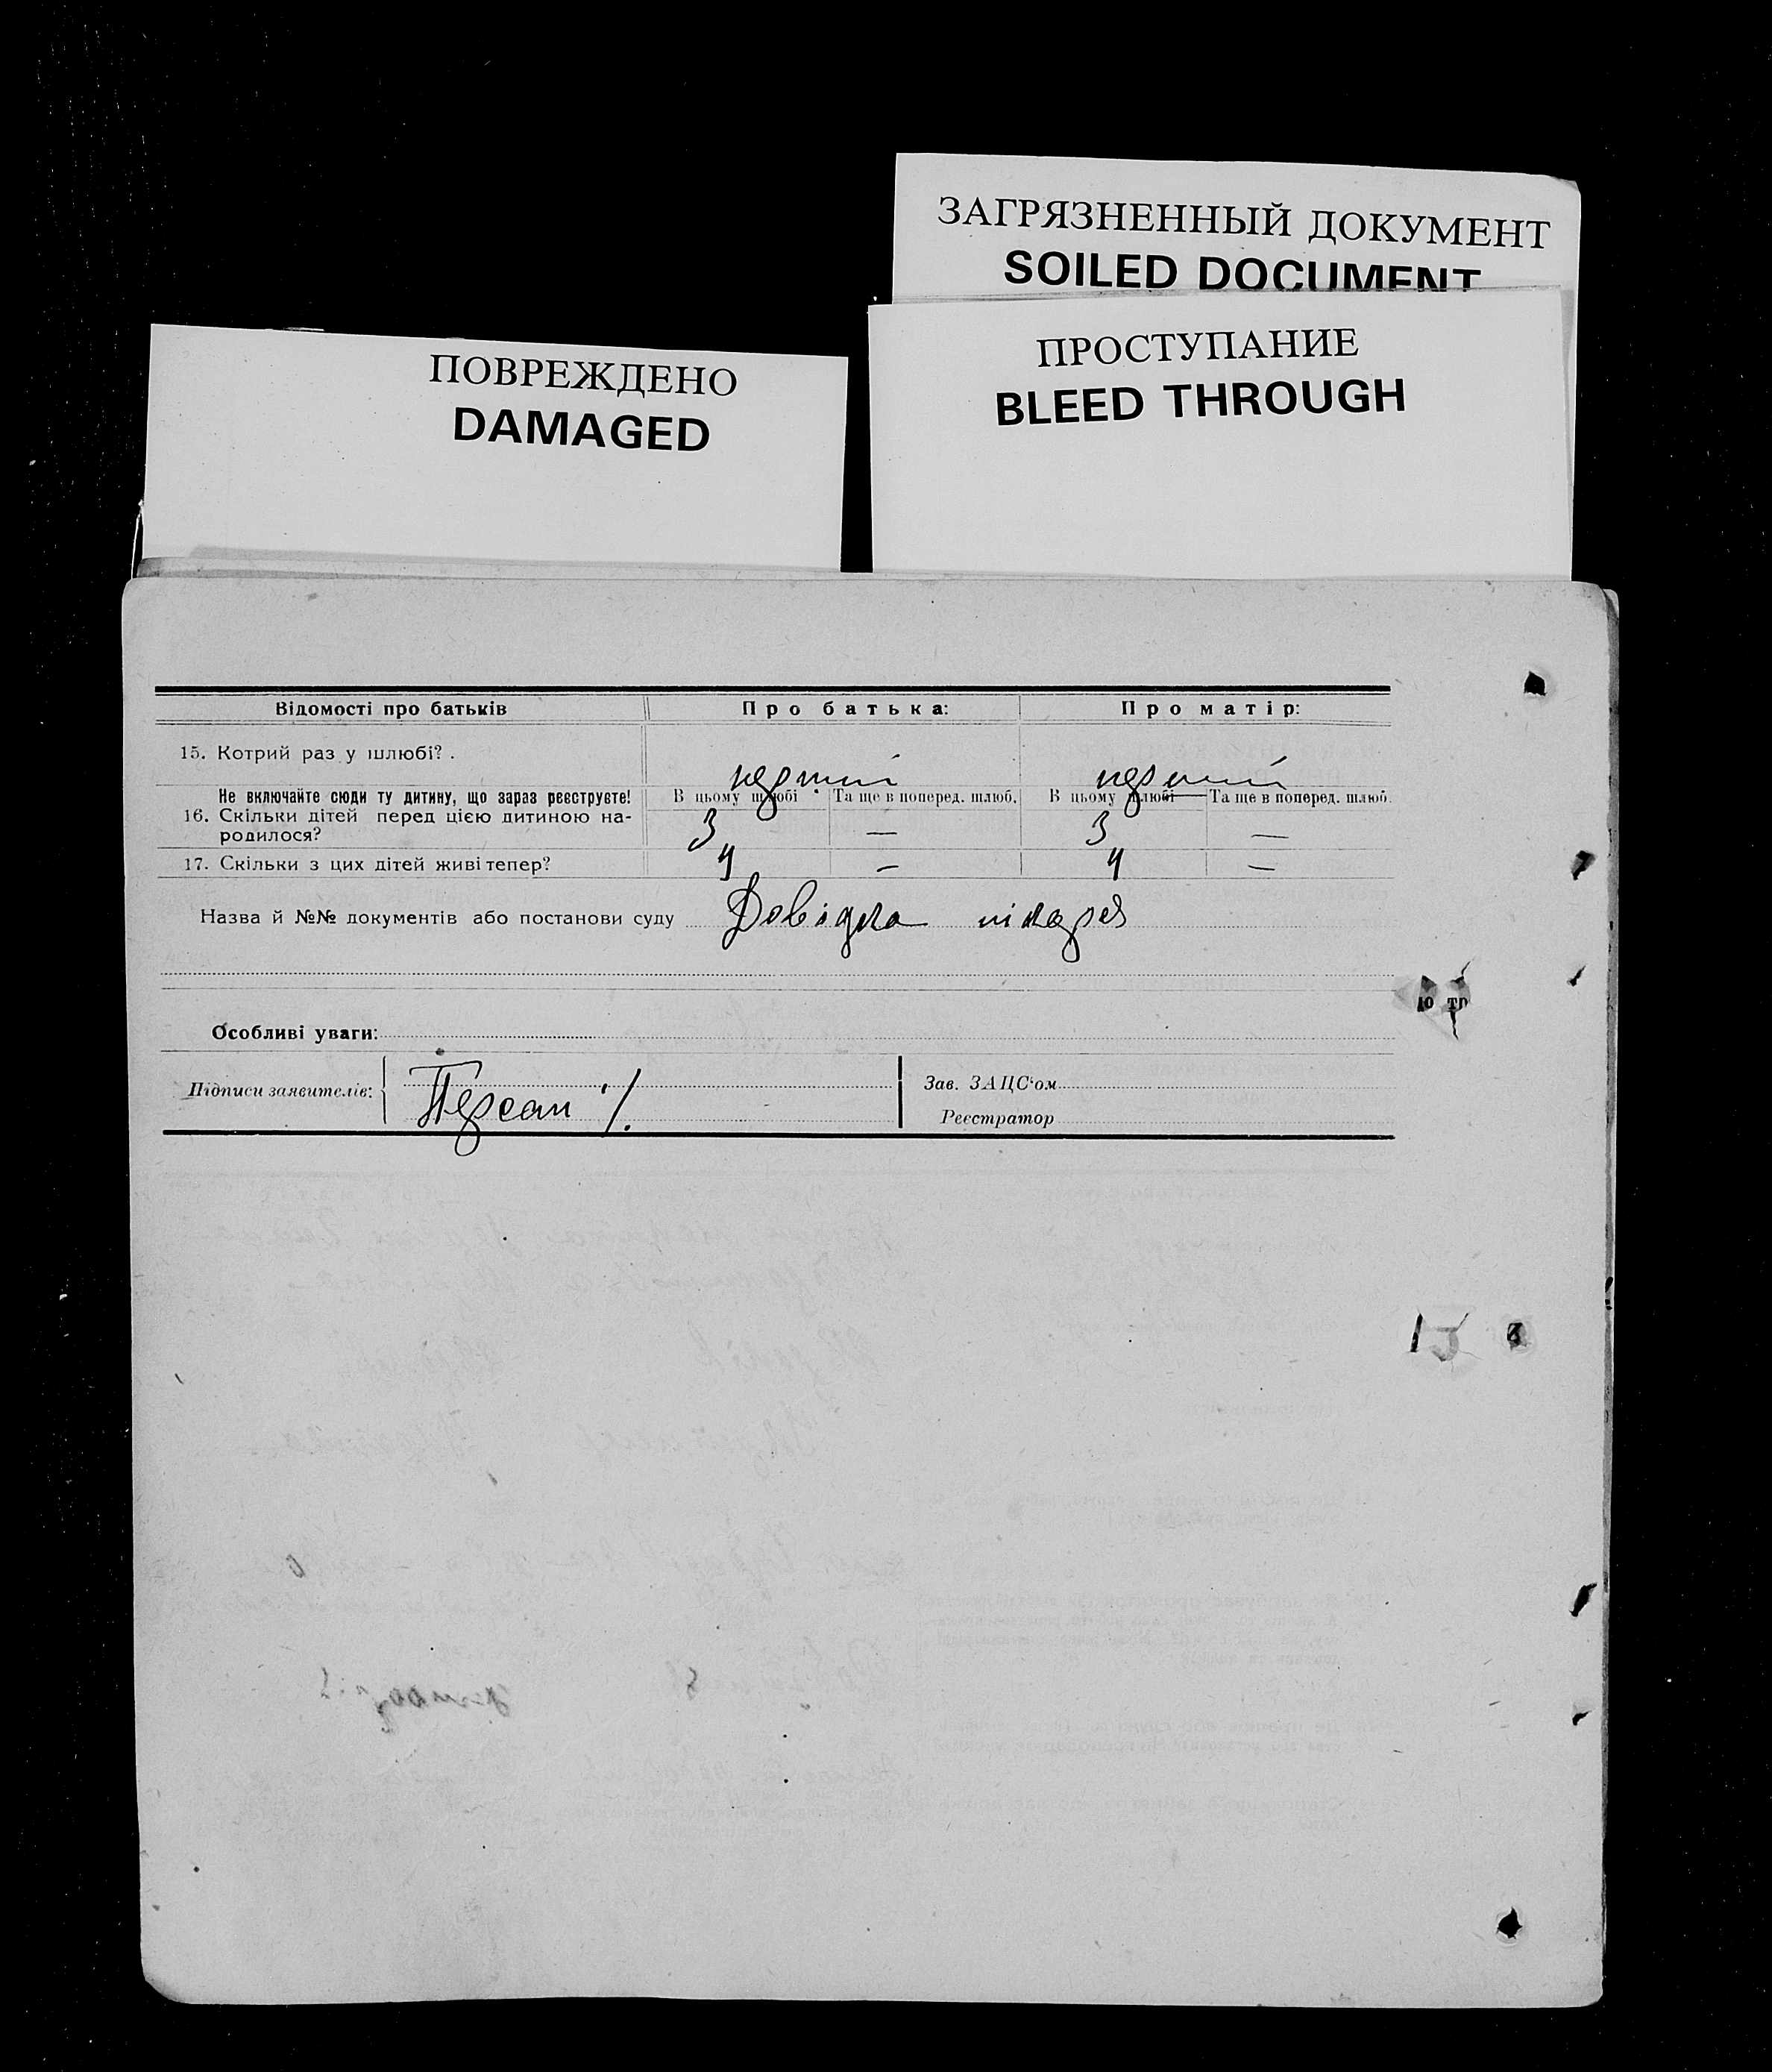 ЗАГРЯЗНЕННЫЙ ДОКУМЕНТ
SOILED DOCUMENT
ПРОСТУПАНИЕ
BLEED THROUGH
ПОВРЕЖДЕНО
DAMAGED
Відомості про батьків Про батька: Про матір:
15. Котрий раз у шлюбі? . перший перший
Не включайте сюди ту дитину, що зараз реєструєте! В цьому шлюбі Та ще в поперед. шлюб. В цьому шлюбі Та ще в поперед. шлюб.
16. Скільки дітей перед цією дитиною на- 3 — 3 —
родилося?
17. Скільки з цих дітей живі тепер? 4 — 4 —
Назва й №№ документів або постанови суду Довідка лікаря
Особливі уваги:
Підписи заявителів: Зав. ЗАЦС'ом
Реєстратор